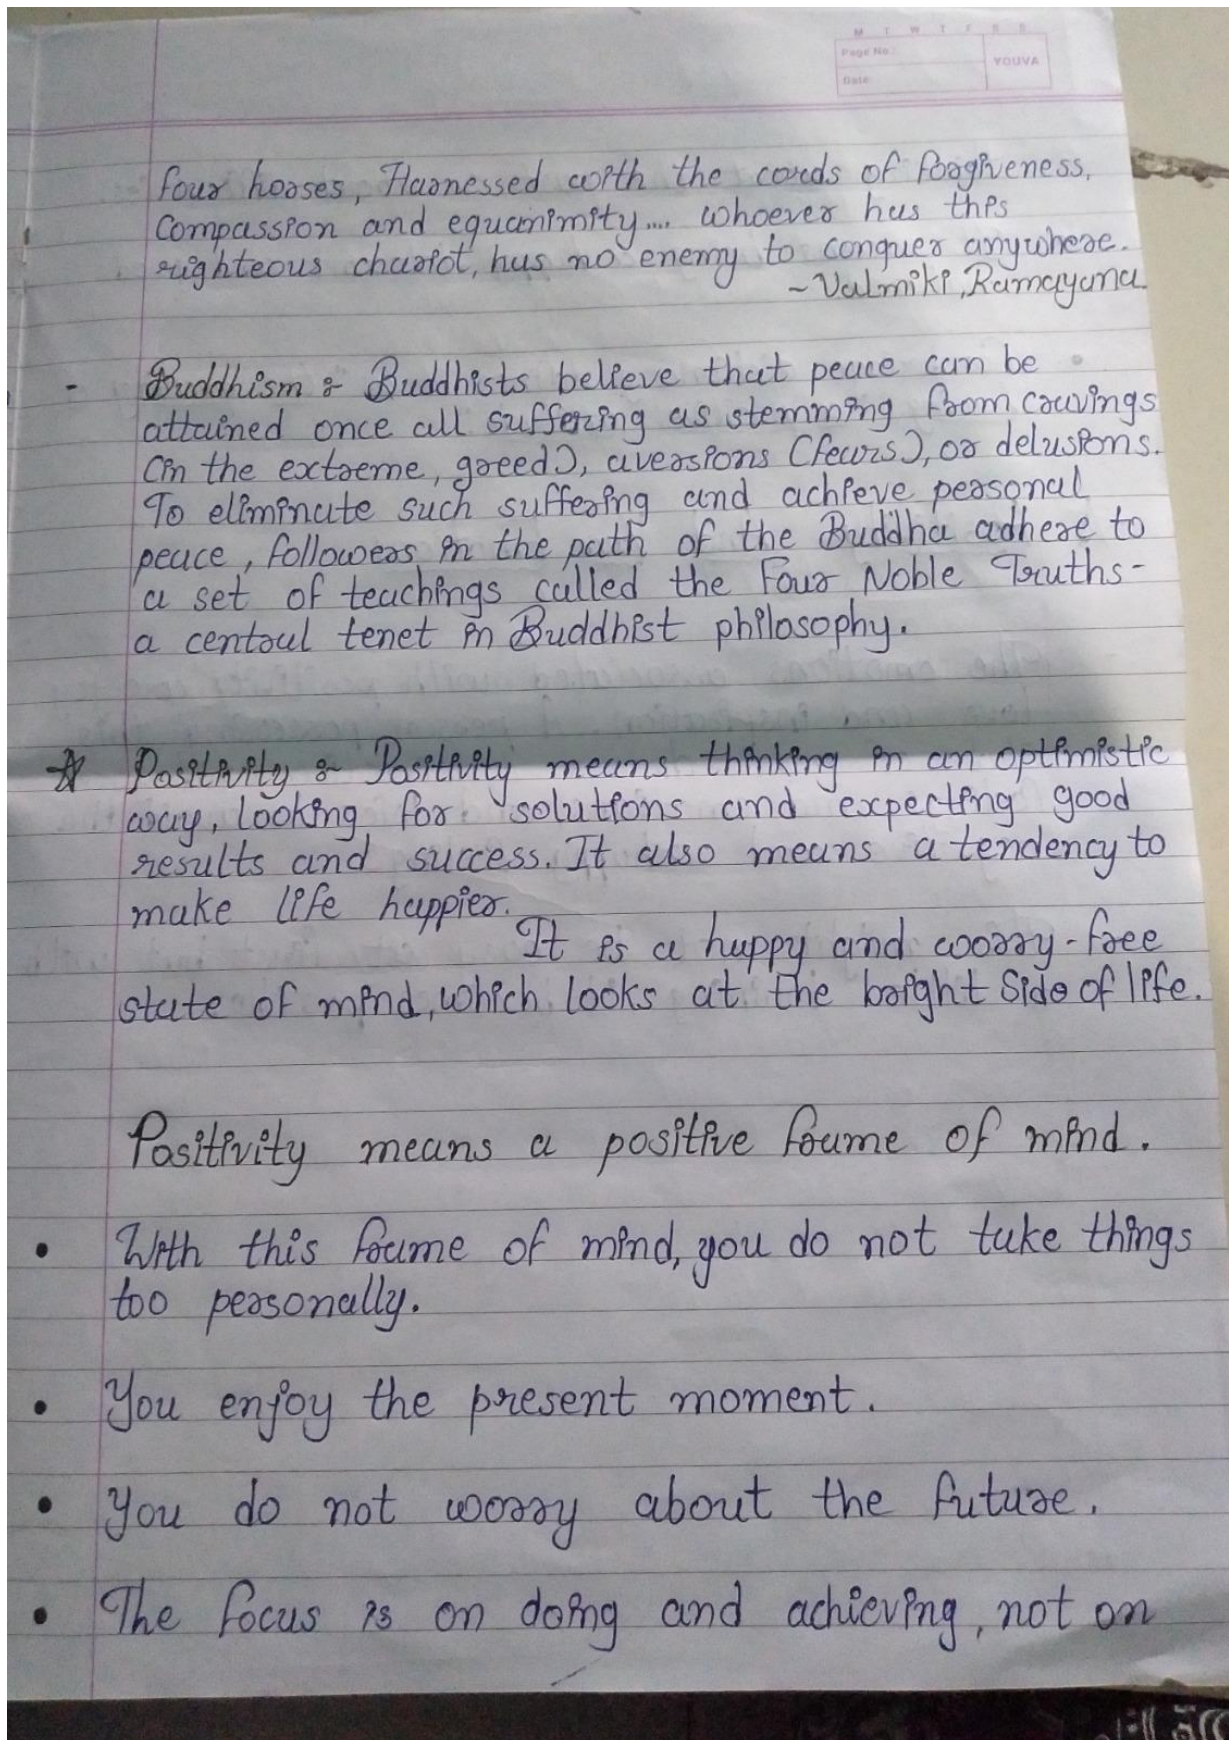 M T W T F S S
Page No.:
YOUVA
Date:
four horses, Harnessed with the cords of forgiveness,
Compassion and equanimity.... whoever has this
righteous chariot, has no enemy to conquer anywhere.
~ Valmiki, Ramayana.
- Buddhism :- Buddhists believe that peace can be
attained once all suffering as stemming from cravings
(in the extreme, greed), aversions (fears), or delusions.
To eliminate such suffering and achieve personal
peace, followers in the path of the Buddha adhere to
a set of teachings called the Four Noble Truths-
a central tenet in Buddhist philosophy.
☆ Positivity :- Positivity means thinking in an optimistic
way, looking for solutions and expecting good
results and success. It also means a tendency to
make life happier.
It is a happy and worry-free
state of mind, which looks at the bright Side of life.
Positivity means a positive frame of mind.
• With this frame of mind, you do not take things
too personally.
• You enjoy the present moment.
• You do not worry about the future.
• The focus is on doing and achieving, not on